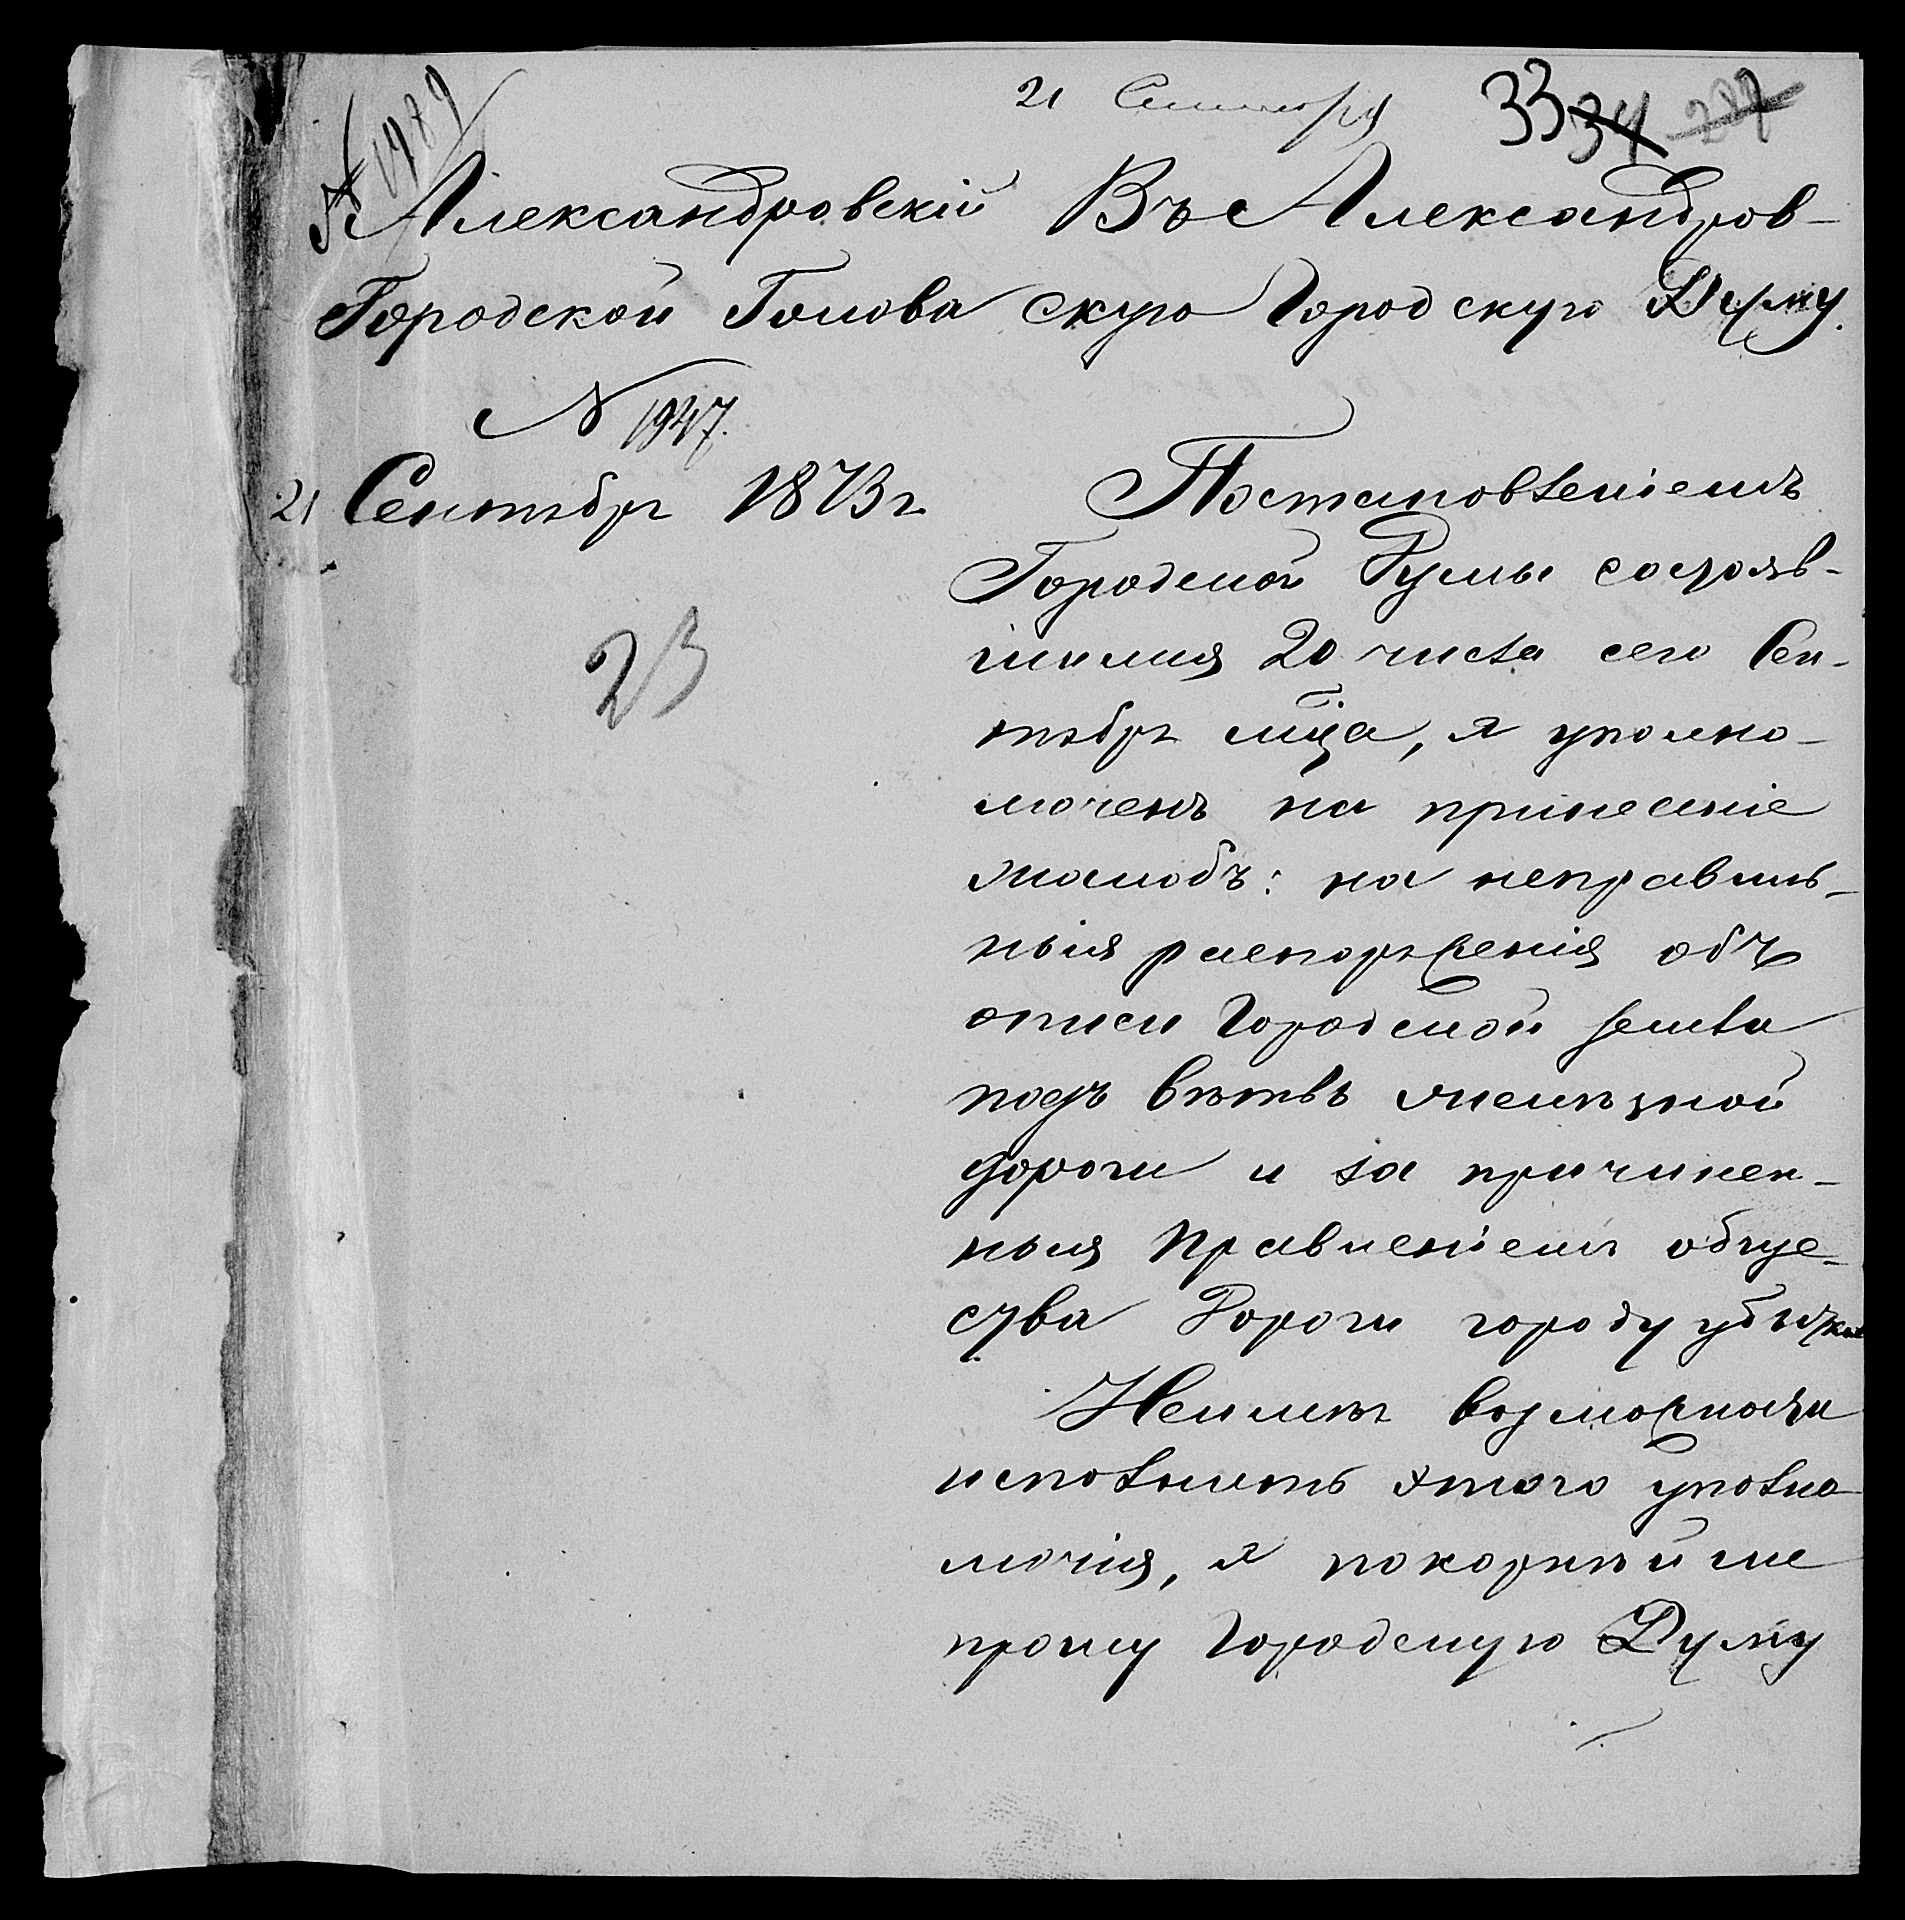 21 Сентября
33 34 287
№ 1989
Александровскій
Городской Голова
№ 1947.
21 Сентябрѧ 1873 г.
23
Въ Александров-
скую Городскую Думу.
Постановленіемъ
Городской Думы состояв-
шимся 20 числа сего Сен-
тября м-ца, я уполно-
моченъ на принесеніе
жалобъ: на неправиль-
ныя распоряженія объ
описи Городской земли
подъ вѣтвь желѣзной
дороги и за причинен-
ныя Правленіемъ обще-
ства Дороги городу убытки
Неимѣя возможности
исполнить этого уполно-
мочія, я покорнѣйше
прошу Городскую Думу